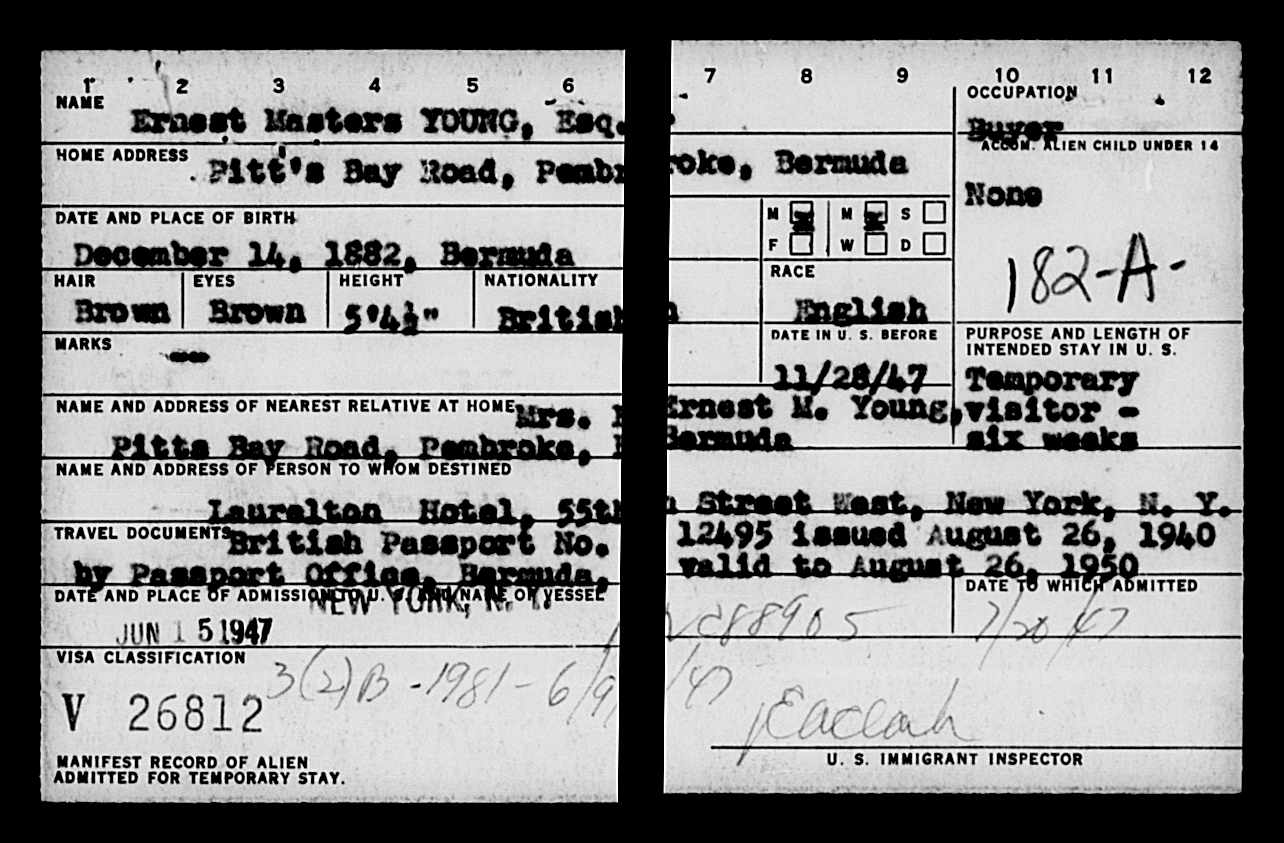 1 2 3 4 5 6 7 8 9 10 11 12
NAME
Ernest Masters YOUNG, Esq.
OCCUPATION
Buyer
HOME ADDRESS
Pitt's Bay Road, Pembroke, Bermuda
ACCOM. ALIEN CHILD UNDER 14
None
DATE AND PLACE OF BIRTH
December 14, 1882, Bermuda
M M S
F W D
182-A-
HAIR EYES HEIGHT NATIONALITY RACE
Brown Brown 5'4½" British English
MARKS
DATE IN U. S. BEFORE
11/28/47
PURPOSE AND LENGTH OF
INTENDED STAY IN U. S.
Temporary
visitor -
six weeks
NAME AND ADDRESS OF NEAREST RELATIVE AT HOME
Mrs. Ernest M. Young,
Pitts Bay Road, Pembroke, Bermuda
NAME AND ADDRESS OF PERSON TO WHOM DESTINED
Laurelton Hotel, 55th Street West, New York, N. Y.
TRAVEL DOCUMENTS
British Passport No. 12495 issued August 26, 1940
by Passport Office, Bermuda, valid to August 26, 1950
DATE AND PLACE OF ADMISSION TO U. S. AND NAME OF VESSEL
NEW YORK, N. Y.
JUN 15 1947
DATE TO WHICH ADMITTED
7/20/47
VISA CLASSIFICATION
3(2)B - 1981 - 6/9/47
V 26812
U. S. IMMIGRANT INSPECTOR
MANIFEST RECORD OF ALIEN
ADMITTED FOR TEMPORARY STAY.